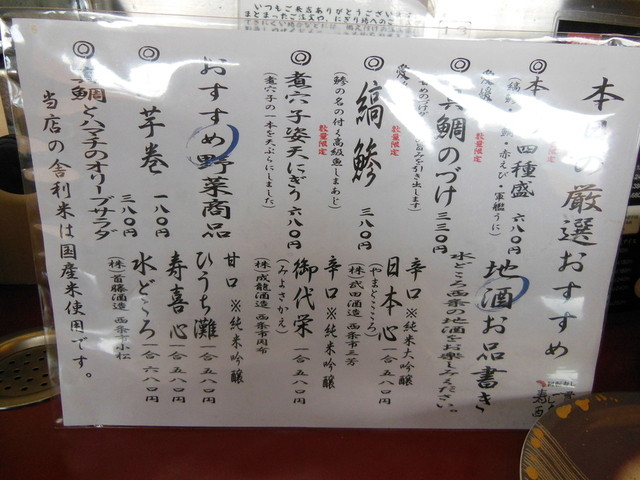 いつもご来店ありがとうございます
本日の厳選おすすめ
◎本日の四種盛 六八〇円
(縞鯵・真鯛・赤えび・軍艦うに)
数量限定
◎真鯛のづけ 三三〇円
旨みを引き出します)
数量限定
◎縞鯵 三八〇円
(鯵の名の付く高級魚しまあじ)
数量限定
◎煮穴子姿天にぎり 六八〇円
(煮穴子の一本を天ぷらにしました)
おすすめ野菜商品
◎芋巻 一八〇円
◎真鯛とハマチのオリーブサラダ 三八〇円
当店の舎利米は国産米使用です。
地酒お品書き
水どころ西条の地酒をお楽しみください。
辛口 ※純米大吟醸
日本心 一合 五八〇円
(やまとごころ)
(株)武田酒造 西条市三芳
辛口 ※純米吟醸
御代栄 一合 五八〇円
(みよさかえ)
(株)成龍酒造 西条市周布
甘口 ※純米吟醸
ひうち灘 一合 五八〇円
寿喜心 一合 五八〇円
水どころ 一合 六八〇円
(株)首藤酒造 西条市小松